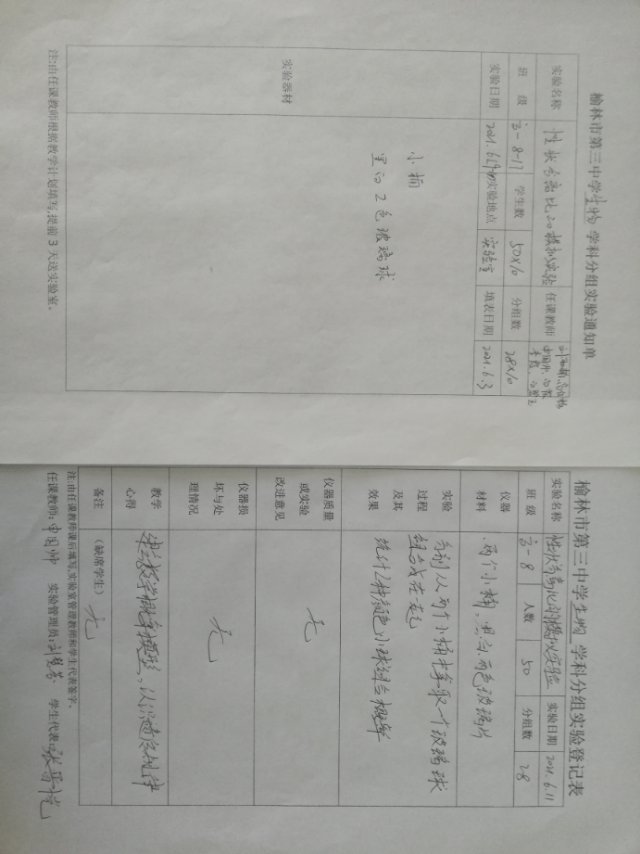 榆林市第三中学生物学科分组实验通知单
实验名称 性状分离比的模拟实验 任课教师
班 级 高一8-17 学生数 50×10 分组数 28×10
实验日期 2021.6. 实验地点 实验室 填表日期 2021.6.3
实验器材
小桶
黑白2色玻璃球
注:由任课教师根据教学计划填写,提前3天送实验室。
榆林市第三中学生物学科分组实验登记表
实验名称 性状分离比的模拟实验 实验日期 2021.6.11
班 级 高一8 人数 50 分组数 28
仪器材料 两个小桶、黑白两色玻璃片
实验过程及其效果
分别从两个小桶中拿取一个玻璃球
组合放在一起
统计几种颜色小球组合概率
仪器质量或实验改进意见 无
仪器损坏与处理情况 无
教学心得 建立数学概率模型,认识遗传规律
备注 (缺席学生) 无
注:由任课教师课后填写,实验室管理教师和学生代表签字。
任课教师: 实验管理员: 学生代表: